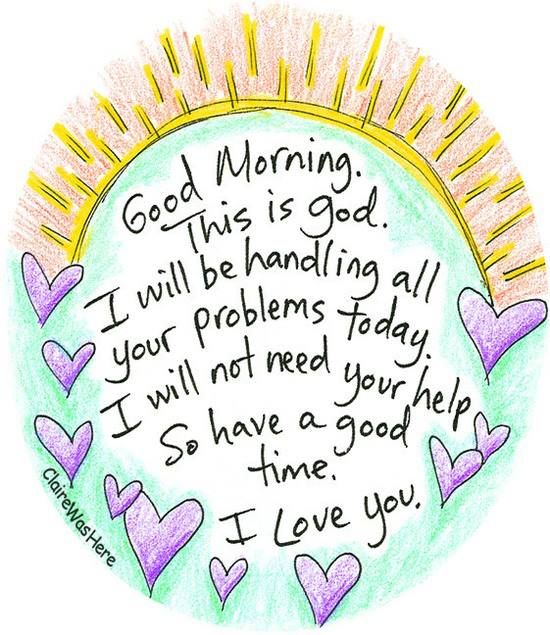 Good Morning.
This is god.
I will be handling all
your problems today.
I will not need your help
So have a good
time.
I Love you.
ClaireWasHere